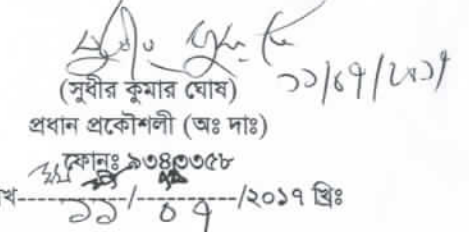 ১১/০৭/২০১৭
(সুধীর কুমার ঘোষ)
প্রধান প্রকৌশলী (অঃ দাঃ)
ফোনঃ ৯৩৪০৩৫৮
খ-----১১-----/-----০৭-----/২০১৭ খ্রিঃ